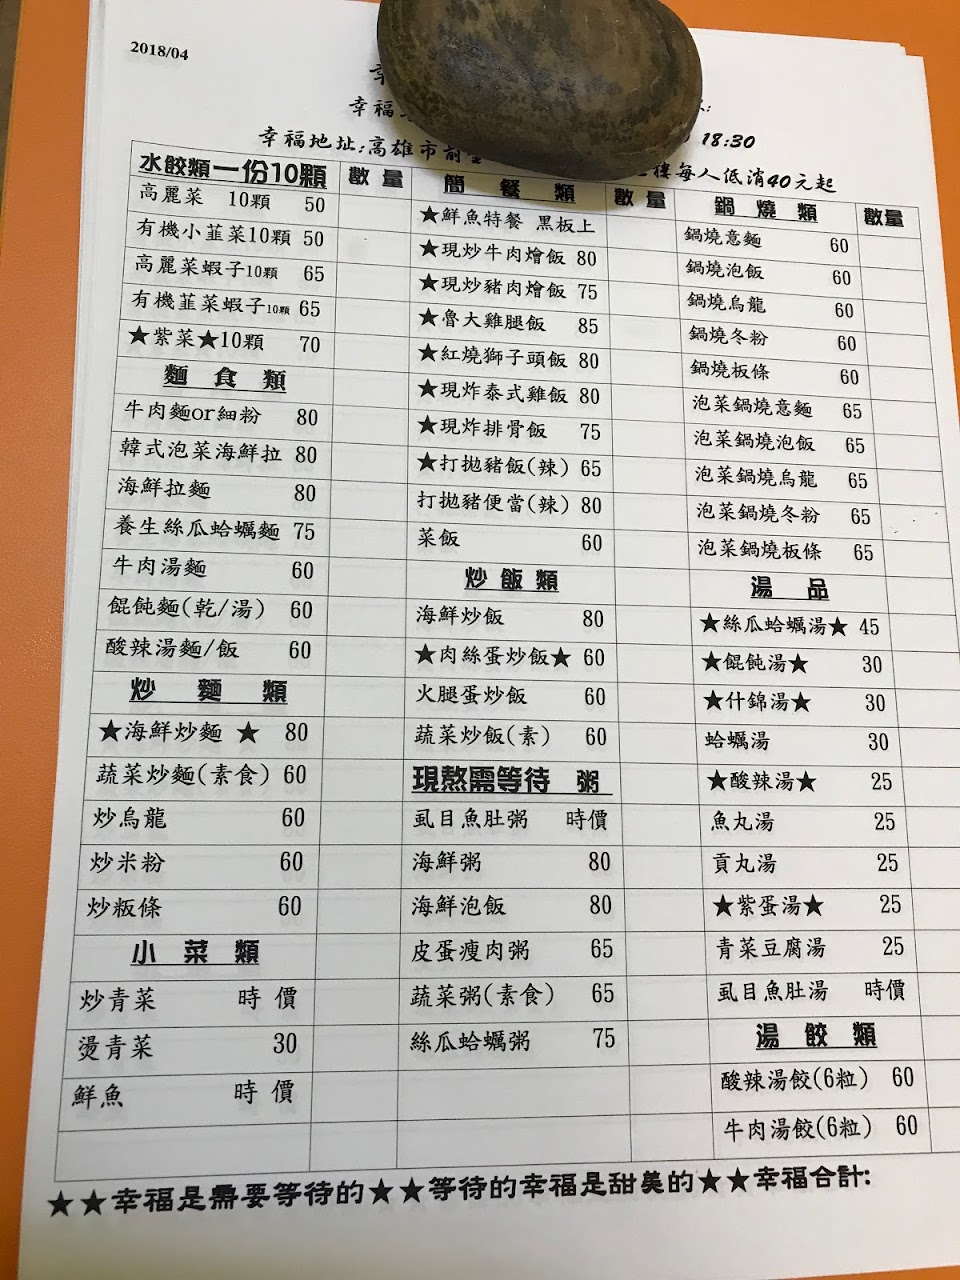 2018/04
幸福
18:30
幸福地址:高雄市前
樓每人低消40元起
水餃類一份10顆 數量
高麗菜 10顆 50
有機小韭菜10顆 50
高麗菜蝦子10顆 65
有機韭菜蝦子10顆 65
★紫菜★10顆 70
麵食類
牛肉麵or細粉 80
韓式泡菜海鮮拉 80
海鮮拉麵 80
養生絲瓜蛤蠣麵 75
牛肉湯麵 60
餛飩麵(乾/湯) 60
酸辣湯麵/飯 60
炒麵類
★海鮮炒麵 ★ 80
蔬菜炒麵(素食) 60
炒烏龍 60
炒米粉 60
炒粄條 60
小菜類
炒青菜 時價
燙青菜 30
鮮魚 時價
簡餐類 數量
★鮮魚特餐 黑板上
★現炒牛肉燴飯 80
★現炒豬肉燴飯 75
★魯大雞腿飯 85
★紅燒獅子頭飯 80
★現炸泰式雞飯 80
★現炸排骨飯 75
★打拋豬飯(辣) 65
打拋豬便當(辣) 80
菜飯 60
炒飯類
海鮮炒飯 80
★肉絲蛋炒飯★ 60
火腿蛋炒飯 60
蔬菜炒飯(素) 60
現熬需等待 粥
虱目魚肚粥 時價
海鮮粥 80
海鮮泡飯 80
皮蛋瘦肉粥 65
蔬菜粥(素食) 65
絲瓜蛤蠣粥 75
鍋燒類 數量
鍋燒意麵 60
鍋燒泡飯 60
鍋燒烏龍 60
鍋燒冬粉 60
鍋燒板條 60
泡菜鍋燒意麵 65
泡菜鍋燒泡飯 65
泡菜鍋燒烏龍 65
泡菜鍋燒冬粉 65
泡菜鍋燒板條 65
湯品
★絲瓜蛤蠣湯★ 45
★餛飩湯★ 30
★什錦湯★ 30
蛤蠣湯 30
★酸辣湯★ 25
魚丸湯 25
貢丸湯 25
★紫蛋湯★ 25
青菜豆腐湯 25
虱目魚肚湯 時價
湯餃類
酸辣湯餃(6粒) 60
牛肉湯餃(6粒) 60
★★幸福是需要等待的★★等待的幸福是甜美的★★幸福合計: